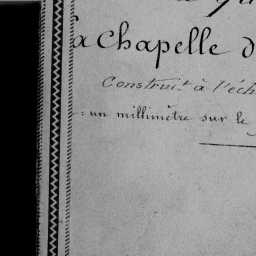 à Chapelle d
Construit à l'éch
un millimètre sur le